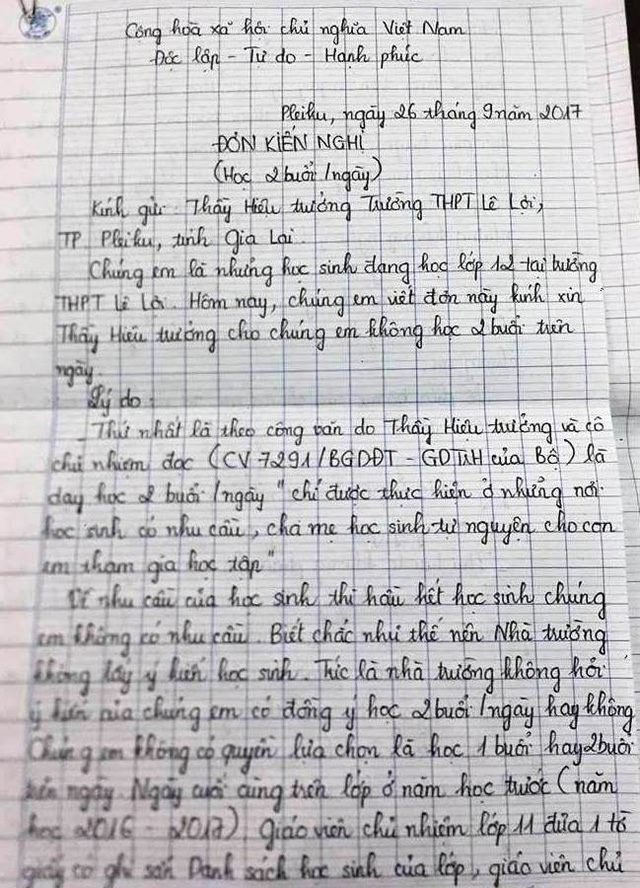 Cộng hoà xã hội chủ nghĩa Việt Nam
Độc lập - Tự do - Hạnh phúc
Pleiku, ngày 26 tháng 9 năm 2017
ĐƠN KIẾN NGHỊ
(Học 2 buổi/ngày)
Kính gửi: Thầy Hiệu trưởng Trường THPT Lê Lợi,
TP Pleiku, tỉnh Gia Lai.
Chúng em là những học sinh đang học lớp 12 tại trường
THPT Lê Lợi. Hôm nay, chúng em viết đơn này kính xin
Thầy Hiệu trưởng cho chúng em không học 2 buổi trên
ngày.
Lý do:
Thứ nhất là theo công văn do Thầy Hiệu trưởng và cô
chủ nhiệm đọc (CV 7291/BGDĐT - GDTrH của Bộ) là
dạy học 2 buổi/ngày "chỉ được thực hiện ở những nơi
học sinh có nhu cầu, cha mẹ học sinh tự nguyện cho con
em tham gia học tập"
Về nhu cầu của học sinh thì hầu hết học sinh chúng
em không có nhu cầu. Biết chắc như thế nên Nhà trường
không lấy ý kiến học sinh. Tức là nhà trường không hỏi
ý kiến của chúng em có đồng ý học 2 buổi/ngày hay không
Chúng em không có quyền lựa chọn là học 1 buổi hay 2 buổi
trên ngày. Ngày cuối cùng trên lớp ở năm học trước (năm
học 2016 - 2017) giáo viên chủ nhiệm lớp 11 đưa 1 tờ
giấy có ghi sẵn Danh sách học sinh của lớp, giáo viên chủ